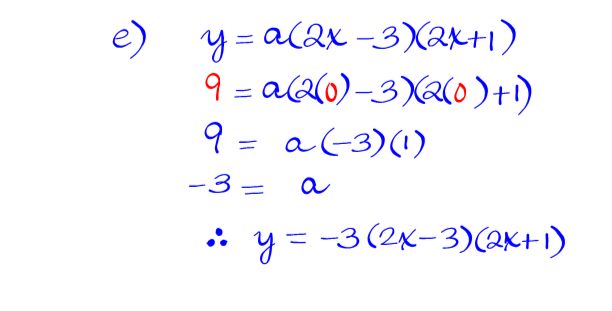 e) y = a(2x - 3)(2x+1)
9 = a(2(0) - 3)(2(0) + 1)
9 = a(-3)(1)
-3 = a
∴ y = -3(2x-3)(2x+1)